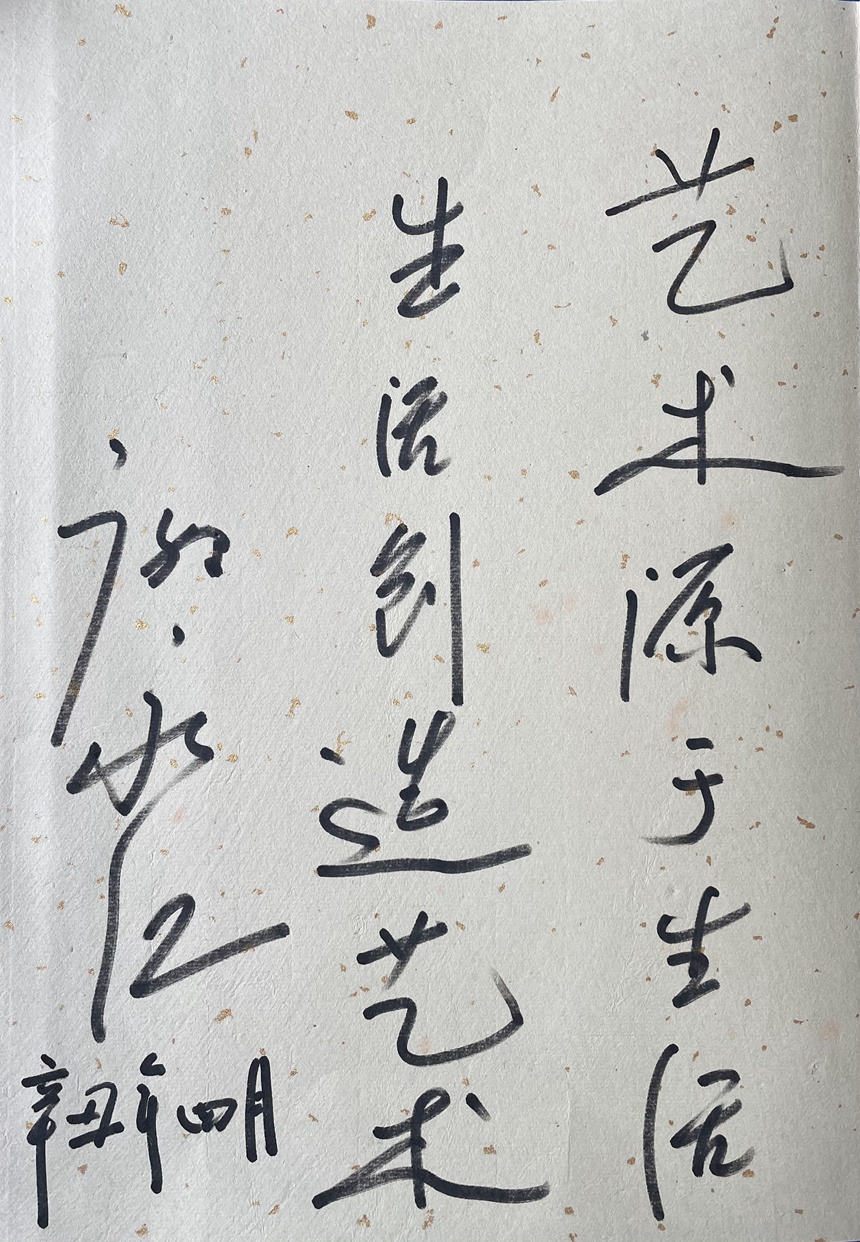 艺术源于生活
生活创造艺术
水江
辛丑年四月